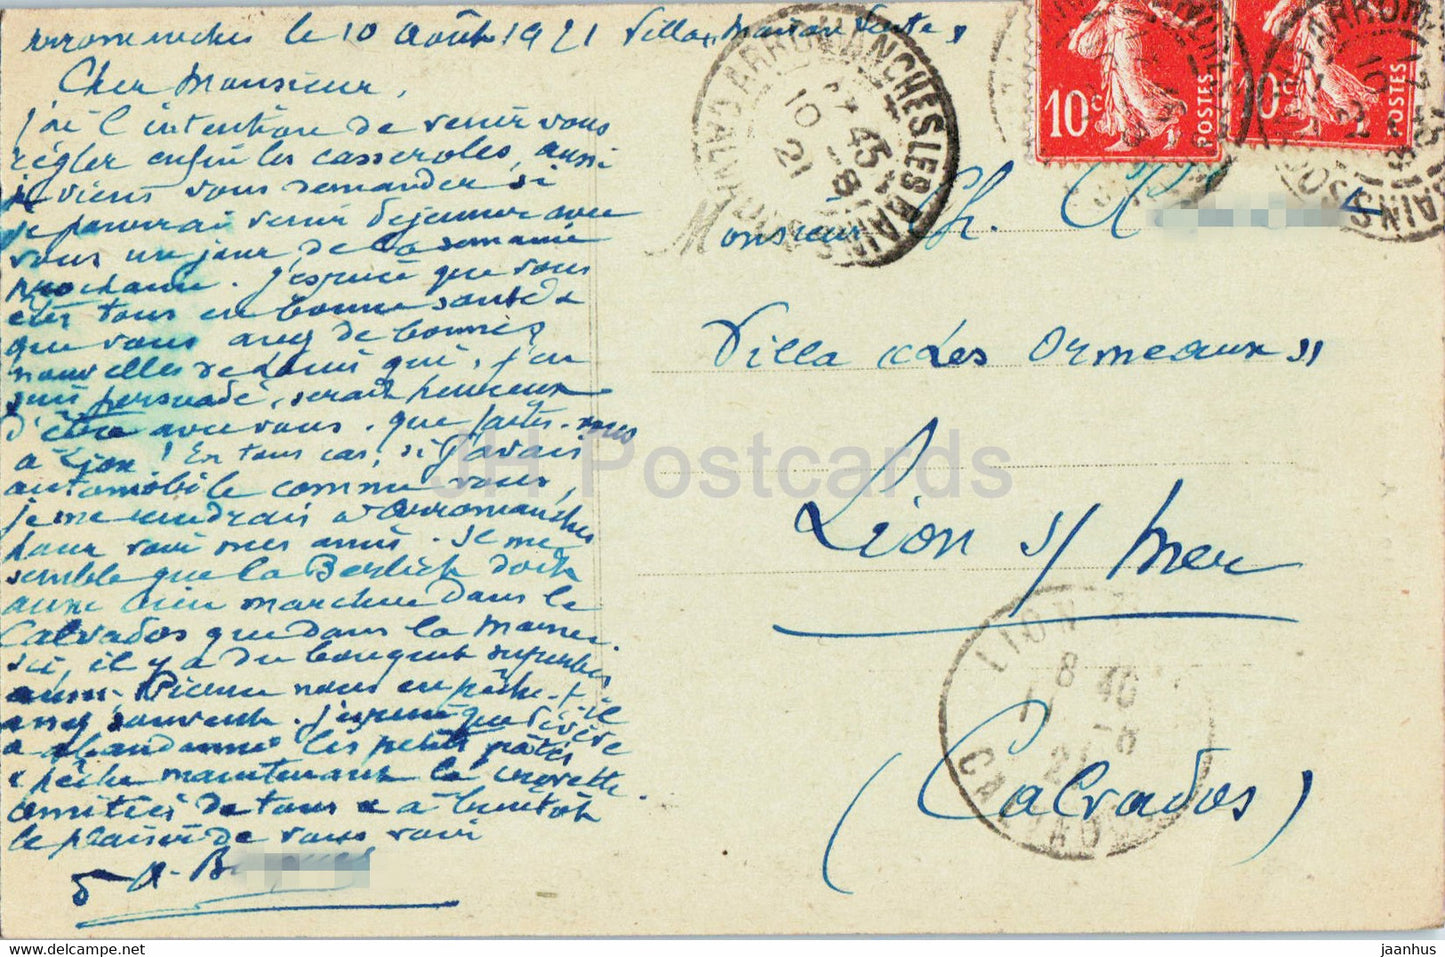 Arromanches le 10 Août 1921 Villa "Maison Verte"
Cher Monsieur,
j'ai l'intention de venir vous
régler enfin les casseroles, aussi
je viens vous demander si
je pourrai venir déjeuner avec
vous un jour de la semaine
prochaine. J'espère que vous
êtes tous en bonne santé &
que vous avez de bonnes
nouvelles de Louis qui, j'en
suis persuadé, serait heureux
d'être avec vous. que faites-vous
à Lion! En tous cas, si j'avais
automobile comme vous,
je me rendrais à Arromanches
pour voir mes amis. Il me
semble que la Berliet doit
aussi bien marcher dans le
Calvados que dans la Marne.
Ici, il y a du bouquet superbe
aussi, Pierre nous en pêche-t-il
assez souvent. J'espère que
a abandonné les petits pâtés
& pêche maintenant la crevette.
Amitiés de tous & à bientôt
le plaisir de vous voir
A. B
Monsieur Ch. A
Villa "Les Ormeaux"
Lion s/ Mer
(Calvados)
ARROMANCHES LES BAINS
CALVADOS
17 45
10 - 8
21
10c
POSTES
10c
POSTES
LION
8 40
11 - 8
21
CALVADOS
JH Postcards
www.hippostcard.com/store/jh-postcards
jaanhus